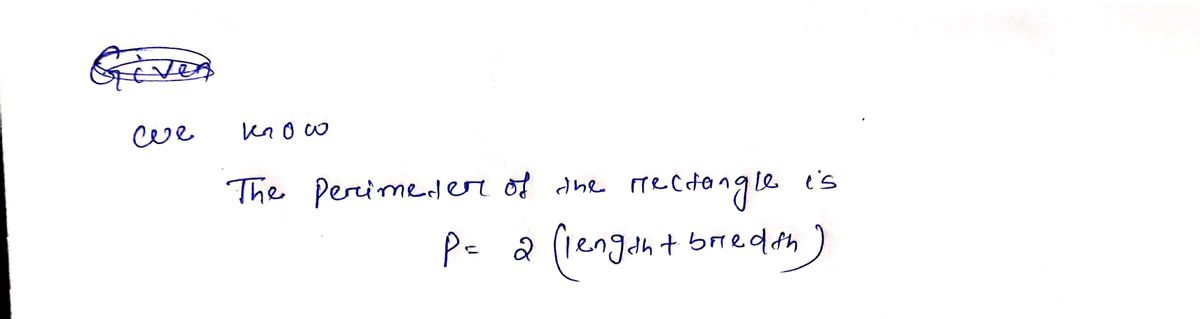 Given
we know
The perimeter of the rectangle is
P= 2 (length + bredth)